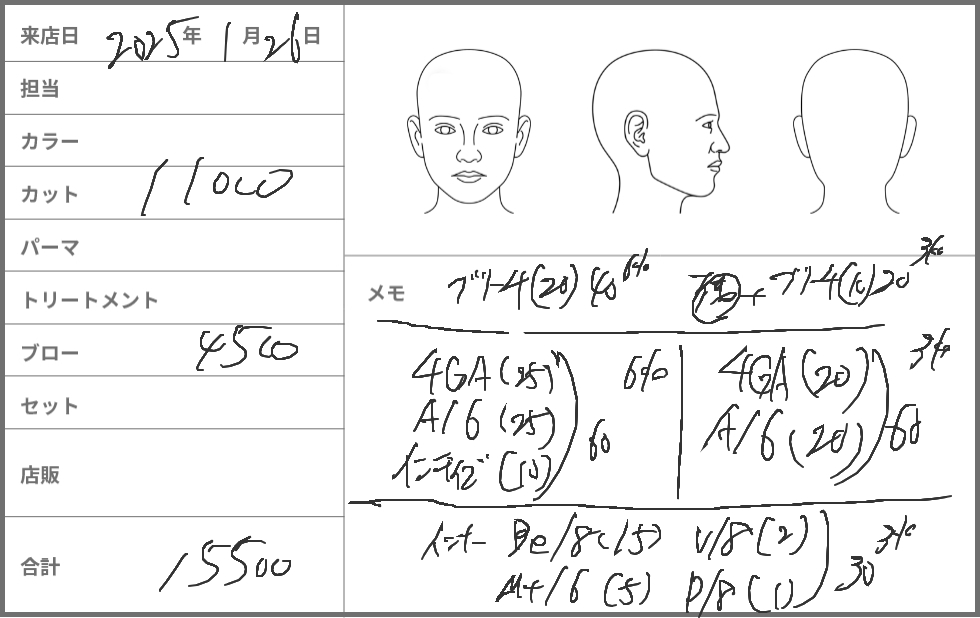 来店日 2025年 1月26日
担当
カラー
カット 11000
パーマ
トリートメント
ブロー 4500
セット
店販
合計 15500
メモ
ブリーチ(20) 40 6%
ブリーチ(10) 20 3%
4GA (25)
A/6 (25)
(10)
60
6%
4GA (20)
A/6 (20)
60
3%
インナー Be/8 (15) V/8 (2)
Mt/6 (5) P/8 (1)
30 3%